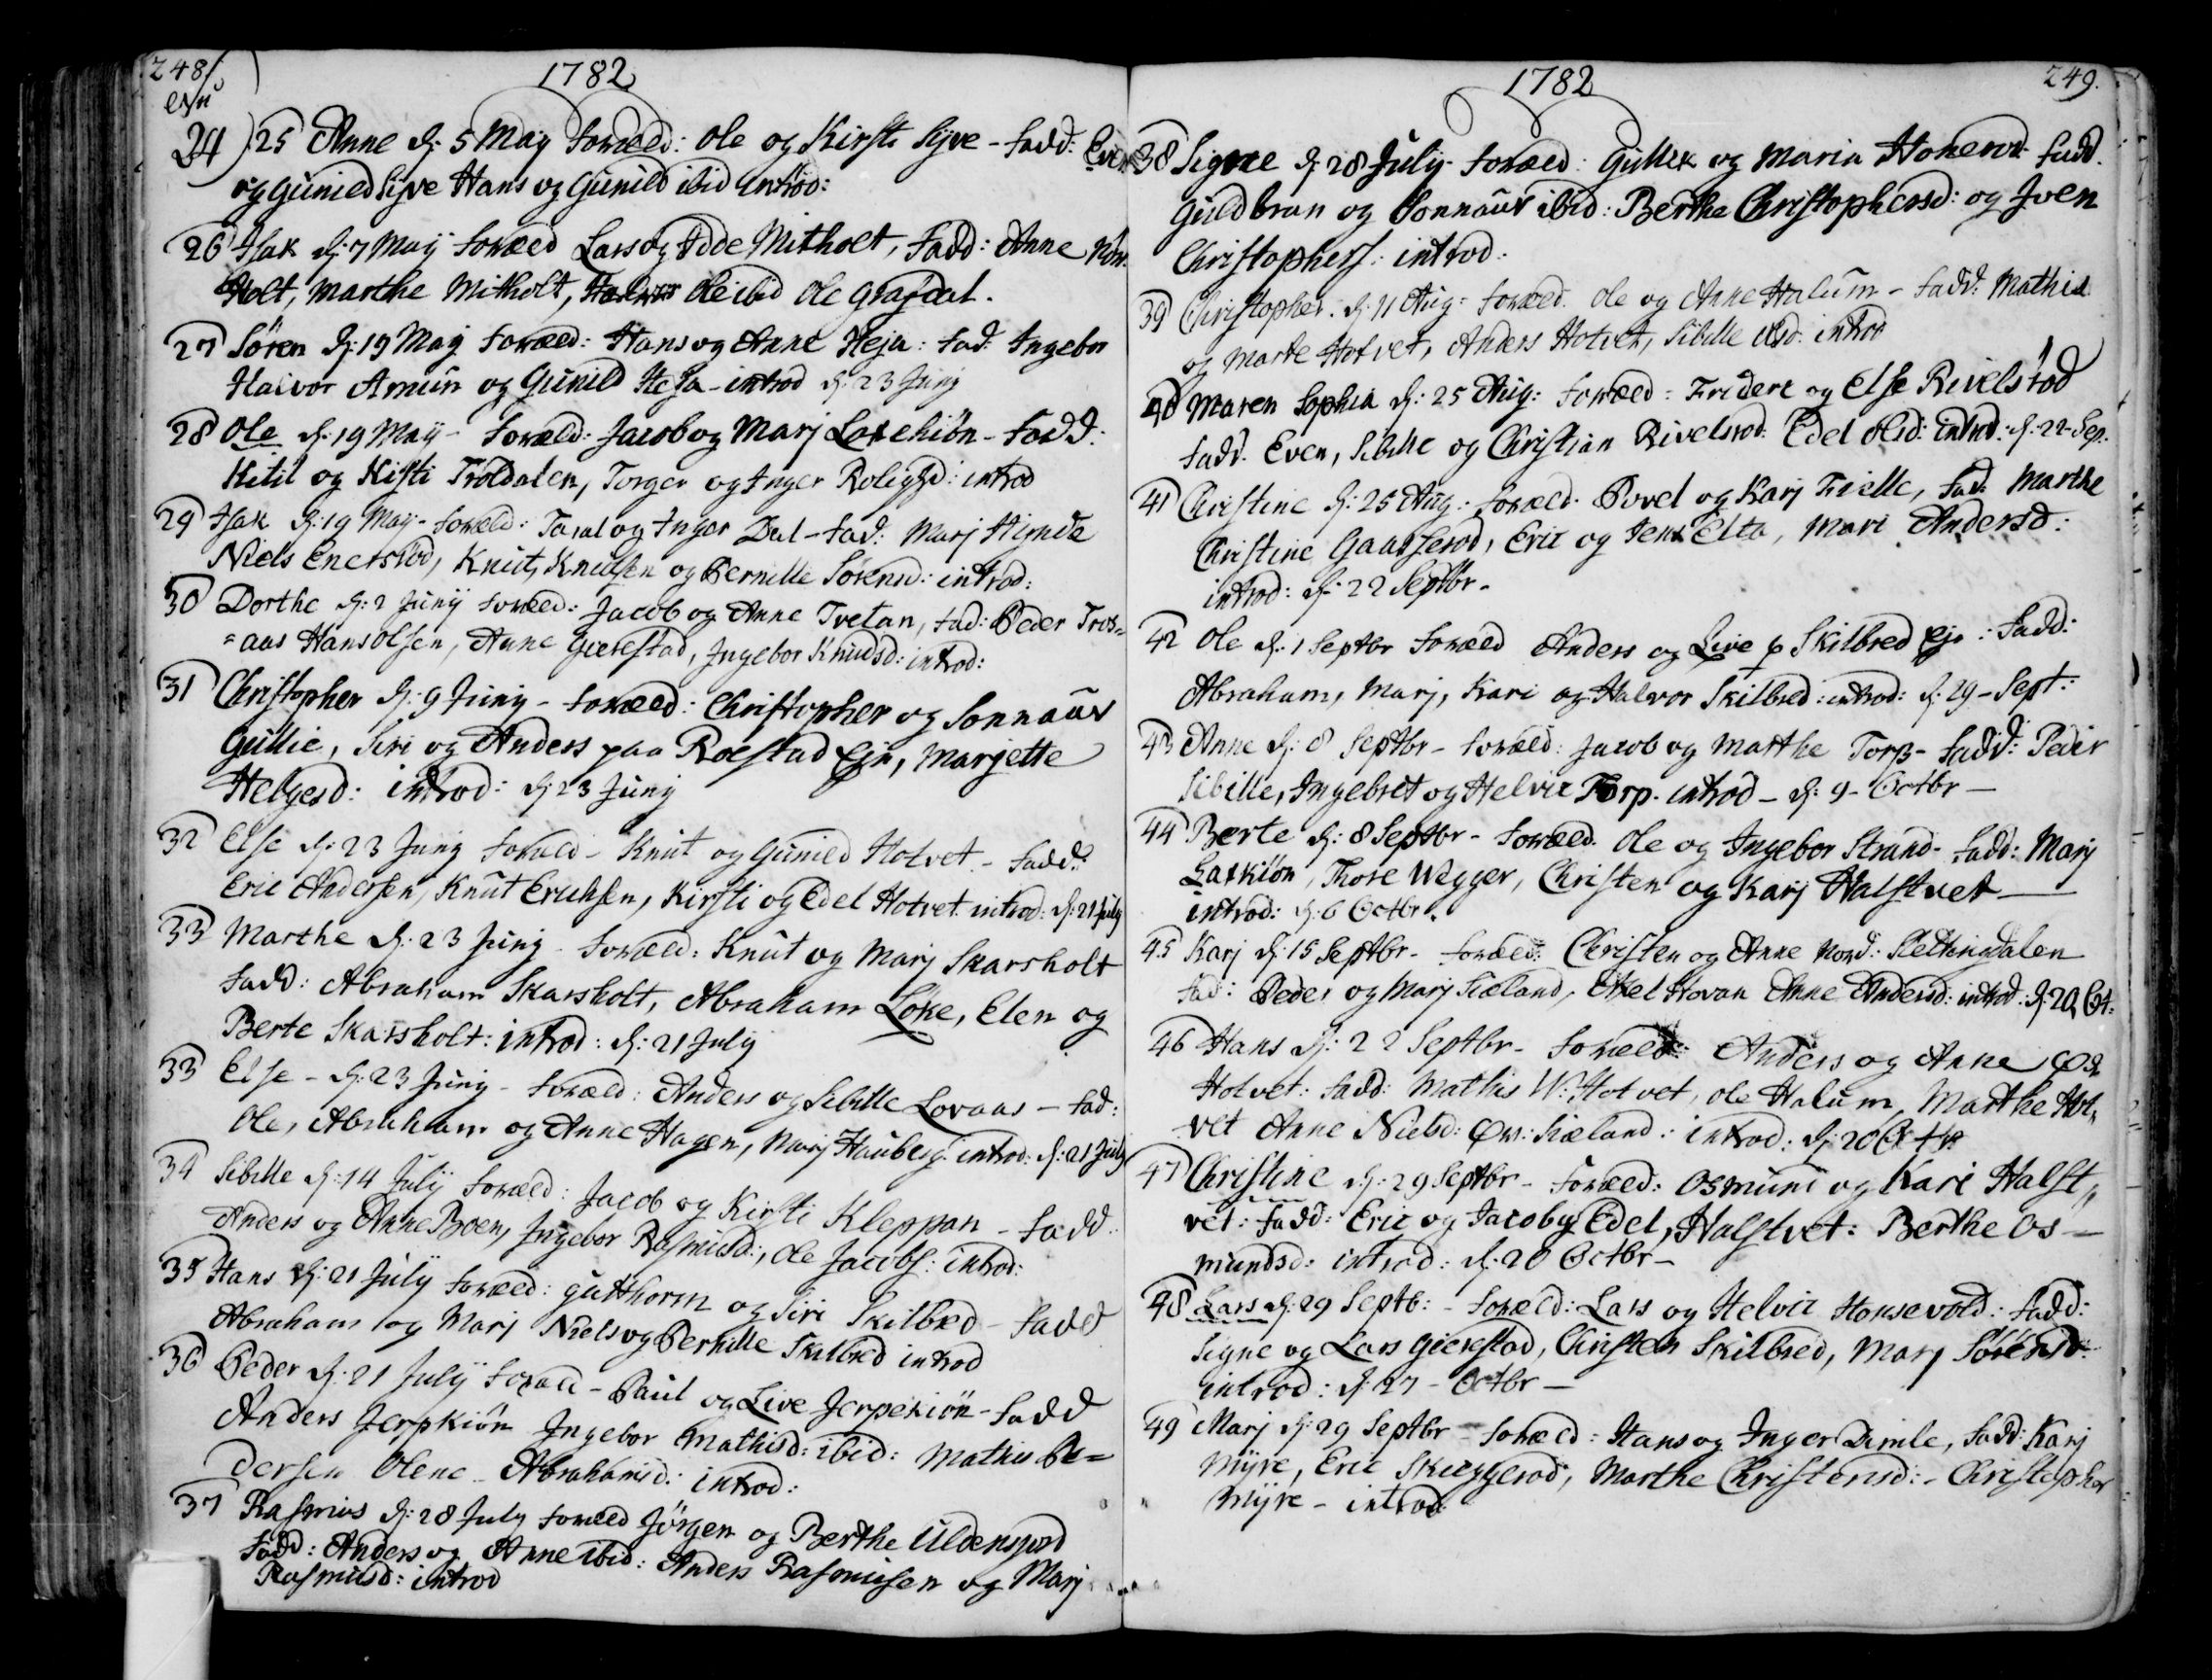 248
1782
24) 25 Anne d: 5 May Foræld: Ole og Kirsti Syve - Fadd: Even
og Gunild Syve Hans og Gunild ibid introd:
26 Isak d: 7 May Foræld Lars og Idde Mitholt, Fadd: Anne
Holt, Marthe Mitholt, Ole ibid Ole
27 Søren d: 19 May Foræld: Hans og Anne Heja: Fad: Ingebor
Halvor Amun og Gunild Heja - introd d: 23 Juny
28 Ole d: 19 May - Foræld: Jacob og Marj Laxekiön - Fadd:
Kitil og Kisti Troldalen, Torger og Inger introd
29 Isak d: 19 May - Foræld: Taral og Inger Dal - Fad: Marj Hynde
Niels Enersrod, Knut Knutsen og Pernille Sörensd: introd:
30 Dorthe d: 2 Juny Foræld: Jacob og Anne Tvetan, Fad: Peder Tros=
=aas Hans Olsen, Anne Gierestad, Ingebor Knudsd: introd:
31 Christopher d: 9 Juny - Foræld: Christopher og Sonnaur
Gullie, Siri og Anders paa Roestad Eje, Marjette
Helgesd: introd: d: 23 Juny
32 Else d: 23 Juny Foræld - Knut og Gunild Hotvet - Fadd:
Eric Andersen, Knut Erichsen, Kirsti og Edel Hotvet introd: d: 21 July
33 Marthe d: 23 Juny - Foræld: Knut og Marj Skarsholt
Fadd: Abraham Skarsholt, Abraham Løke, Elen og
Berte Skarsholt: introd: d: 21 July
33 Else - d: 23 Juny - Foræld: Anders og Sibille Lovaas - Fad:
Ole, Abraham og Anne Hagen, Marj Hauberg introd: d: 21 July
34 Sibille d: 14 July Foræld: Jacob og Kirsti Kleppan - Fadd
Anders og Anne Boen, Ingebor Rasmusd:, Ole Jacobs: introd:
35 Hans d: 21 July Foræld: Gutthorm og Siri Skilbred - Fadd
Abraham og Marj Niels og Pernille Skilbred introd
36 Peder d: 21 July Foræld - Paul og Live Jerpekiön - Fadd
Anders Jerpkiön Ingebor Mathisd: ibid: Mathis Pe=
dersen Olene Abrahamsd: introd:
37 Rasmus d: 28 July Foræld Jörgen og Berthe Uldensjord
Fadd: Anders og Anne ibid: Anders Rasmusen og Marj
Rasmusd: introd
1782
249.
38 Signe d: 28 July - Foræld: Gullik og Maria Honerod Fadd.
Guldbran og Sonnaur ibid: Berthe Christophersd: og Iven
Christophers: introd:
39 Christopher: d: 11 Aug: Foræld. Ole og Anne Halum - Fadd: Mathis
og Marte Hotvet, Anders Hotvet, Sibille introd
40 Maren Sophia d: 25 Aug: Foræld: Frideric og Else Rivelsrod
Fadd. Even, Sibille og Christian Rivelsrod: Edel Olsd: introd: d: 22 Sep.
41 Christine d: 25 Aug: Foræld: Povel og Karj Fielle, Fad: Marthe
Christine Gaaserod, Eric og Jens Elta, Mari Andersd:
introd: d: 22 Septbr -
42 Ole d: 1 Septbr Foræld Anders og Live p Skilbred Eje: Fadd:
Abraham, Marj, Kari og Halvor Skilbred: introd: d: 29 - Sept:
43 Anne d: 8 Septbr - Foræld: Jacob og Marthe Torp - Fadd: Peder
Sibille, Ingebret og Helvic Torp. introd - d: 9 - Octbr -
44 Berte d: 8 Septbr - Foræld. Ole og Ingebor Strand - Fadd: Marj
Laxkiön, Thore Wegger, Christen og Karj Halstvet -
introd: d: 6 Octbr.
45 Karj d: 15 Septbr - Foræld: Christen og Anne Nord: Slettingdalen
Fad: Peder og Marj Kiæland, Axel Hovan Anne Andersd: introd: d: 20 Oct.
46 Hans d: 22 Septbr - Foræld: Anders og Anne Ø:
Hotvet: Fadd: Mathis W: Hotvet, Ole Halum, Marthe Hot,,
vet Anne Nielsd: Kiæland: introd: d: 20 Octbr
47 Christine d: 29 Septbr - Foræld: Osmund og Kari Halst,,
vet: Fadd: Eric og Jacob og Edel, Halstvet: Berthe Os -
mundsd: introd: d: 20 Octbr -
48 Lars d: 29 Septb: - Foræld: Lars og Helvic Honsevold: Fadd:
Signe og Lars Gierestad, Christen Skilbred, Marj Sörensd:
introd: d: 27 - Octbr -
49 Marj d: 29 Septbr - Foræld: Hans og Inger Dimle, Fadd: Karj
Myre, Eric Skieggerod, Marthe Christensd: - Christopher
Myre - introd: